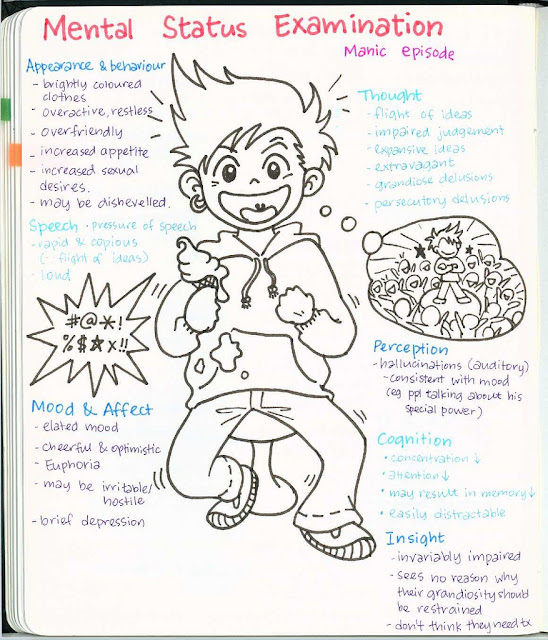 Mental Status Examination
Manic episode
Appearance & behaviour
- brightly coloured
clothes
- overactive, restless
- overfriendly
- increased appetite
- increased sexual
desires.
- may be dishevelled.
Speech • pressure of speech
- rapid & copious
(∴ flight of ideas)
- loud
#@*!
%$☆x!!
Mood & Affect
- elated mood
- cheerful & optimistic
- Euphoria
- may be irritable/
hostile
- brief depression
Thought
- flight of ideas
- impaired judgement
- expansive ideas
- extravagant
- grandiose delusions
- persecutory delusions
Perception
- hallucinations (auditory)
- consistent with mood
(eg ppl talking about his
special power)
Cognition
• concentration ↓
• attention ↓
• may result in memory ↓
• easily distractable
Insight
- invariably impaired
- sees no reason why
their grandiosity should
be restrained
- don't think they need tx